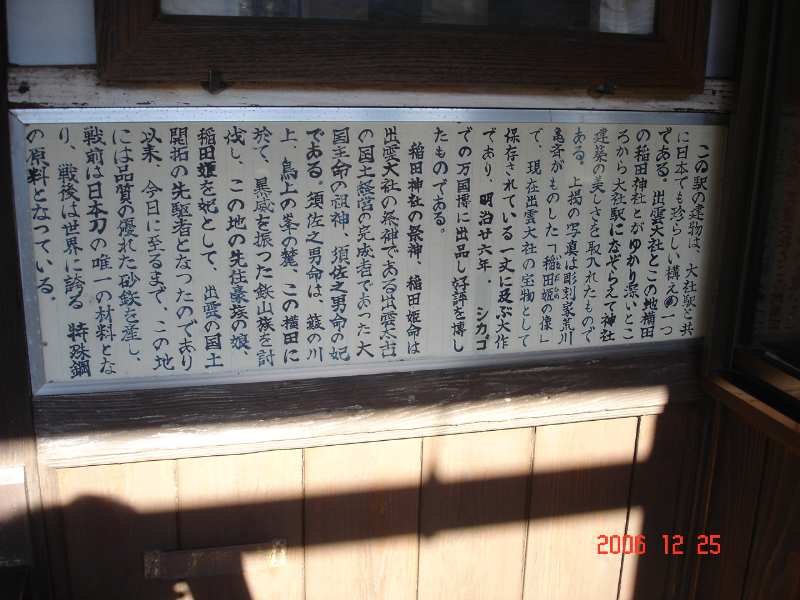 この駅の建物は、大社駅と共
に日本でも珍らしい構えの一つ
である。出雲大社とこの地横田
の稲田神社とがゆかり深いとこ
ろから大社駅になぞらえて神社
建築の美しさを取入れたもので
ある。上掲の写真は彫刻家荒川
亀斉がものした「稲田姫の像」
で、現在出雲大社の宝物として
保存されている一丈に及ぶ大作
であり、明治廿六年、シカゴ
での万国博に出品し好評を博し
たものである。
稲田神社の祭神 稲田姫命は
出雲大社の祭神である出雲太古
の国土経営の完成者であった大
国主命の祖神、須佐之男命の妃
である。須佐之男命は、簸の川
上、鳥上の峯の麓、この横田に
於て、暴威を振った鉄山族を討
伐し、この地の先住豪族の娘、
稲田姫を妃として、出雲の国土
開拓の先駆者となったのであり
以来、今日に至るまで、この地
には品質の優れた砂鉄を産し、
戦前は日本刀の唯一の材料とな
り、戦後は世界に誇る 特殊鋼
の原料となっている。
2006 12 25